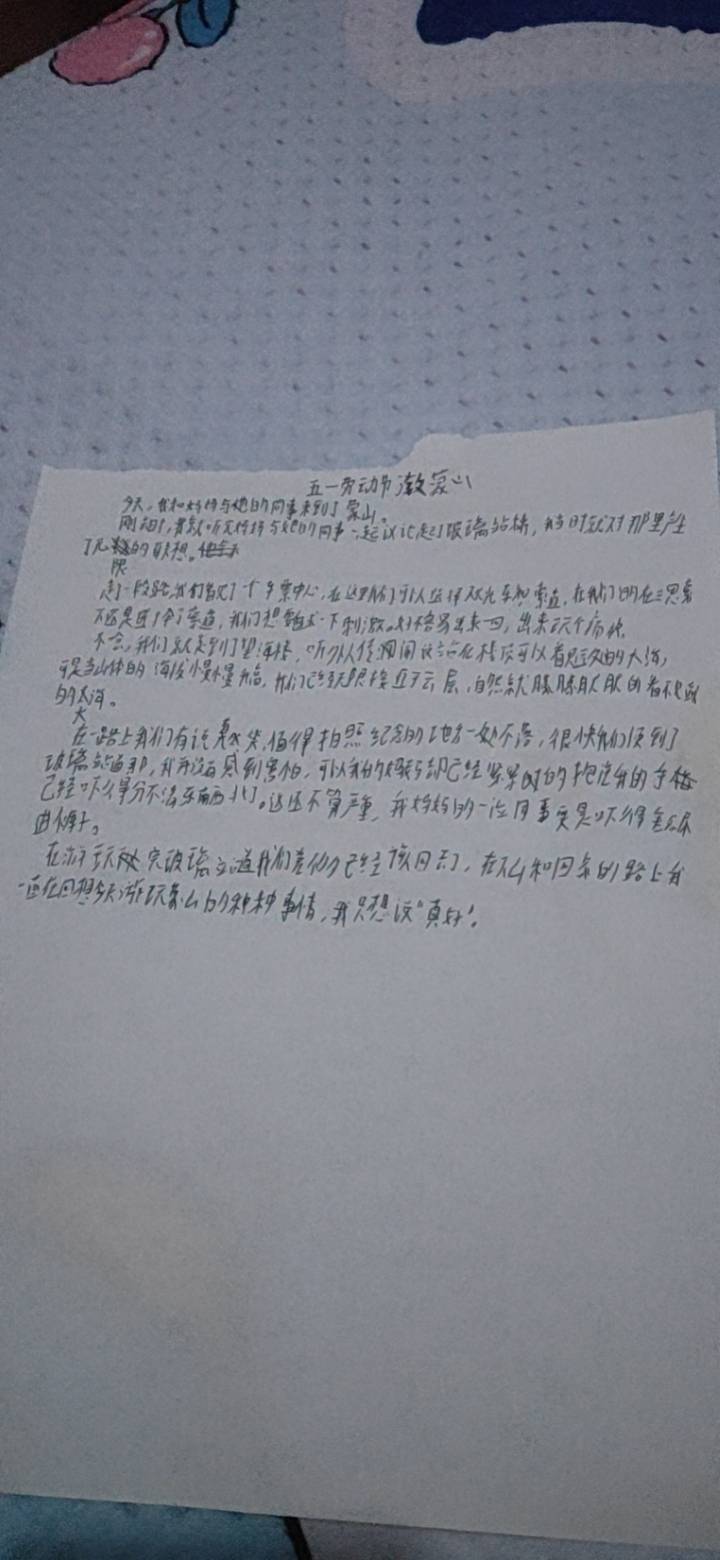 五一劳动节激蒙山
今天,我和妈妈与她的同事来到了蒙山。
刚动时,就听见妈妈与她的同事一起议论起了玻璃站桥,我当时就对那里产生
了无限的联想。
走了一段路,我们看见了一个乡票中心,在这里我们可以选择观光车和索道,在我们的在三思索
下还是团了个索道,我们想要试一下刺激。好不容易出来一回,出来玩个痛快。
不会,我们就走到了望海楼,听别人说可以看见远处的大海,
可是当山体的海拔慢慢升高,我们已经接近于云层,自然就朦朦胧胧的看不见
的大海。
在一路上我们有说有笑,值得拍照纪念的地方一处不落,很快我们便到了
玻璃站面那,我并没有感到害怕,可我的妈妈却已经紧紧的抱住我的手
已经吓得分不清东南西北了。这还不算严重,我妈妈的一位同事更是吓得
由
在游玩玻璃立道我们差不多已经该回去了,在下山和回家的路上我
一直在回想今天游玩蒙山的种种事情,我只想说“真好”。